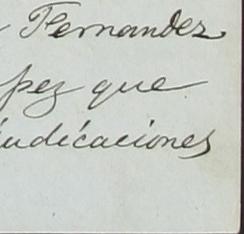 Fernandez
pez que
indicaciones